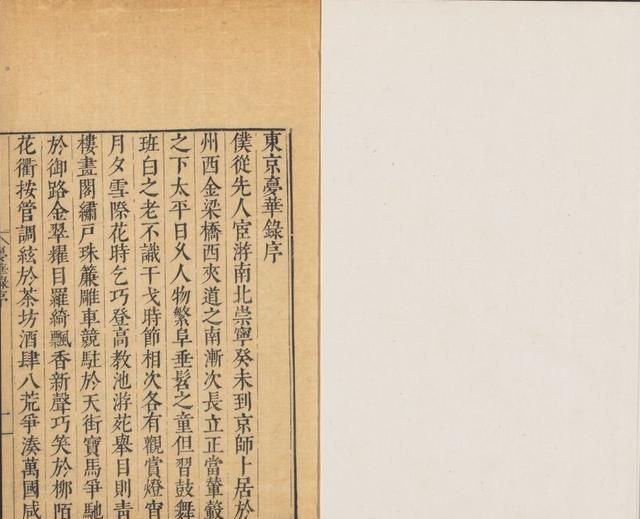 東京夢華錄序
僕從先人宦游南北崇寧癸未到京師卜居於
州西金梁橋西夾道之南漸次長立正當輦轂
之下太平日久人物繁阜垂髫之童但習鼓舞
班白之老不識干戈時節相次各有觀賞燈宵
月夕雪際花時乞巧登高教池游苑舉目則青
樓畫閣繡戶珠簾雕車競駐於天街寶馬爭馳
於御路金翠耀目羅綺飄香新聲巧笑於柳陌
花衢按管調絃於茶坊酒肆八荒爭湊萬國咸
夢華錄序
一